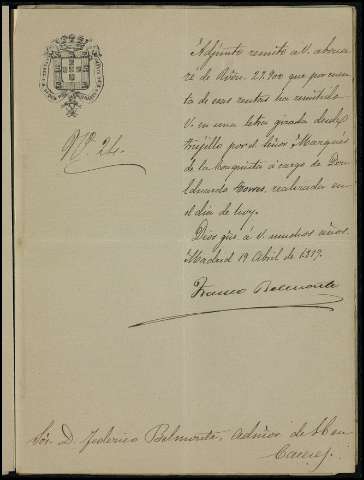 Nº. 24.
Adjunto remito a V. abona-
re de Rvon. 27.900 que por cuen-
ta de esas rentas ha remitido
V. en una letra girada desde
Trujillo por el Señor Marqués
de la Conquista á cargo de Don
Eduardo Torres, realizada en
el dia de hoy.
Dios gue. á V. muchos años.
Madrid 19 Abril de
Franco Belmonte
Sor. D. Federico Belmonte, Admor. de
Caceres.